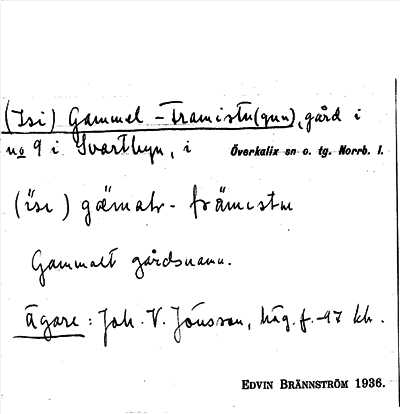 (Isi) Gammel-Främistu(gun), gård i
no 9 i Svartbyn, i Överkalix sn o. tg. Norrb. l.
(isi) gæmalr-främistu
Gammalt gårdsnamn.
Ägare: Joh. V. Jönsson, häg. f. -97 kh.
EDVIN BRÄNNSTRÖM 1936.